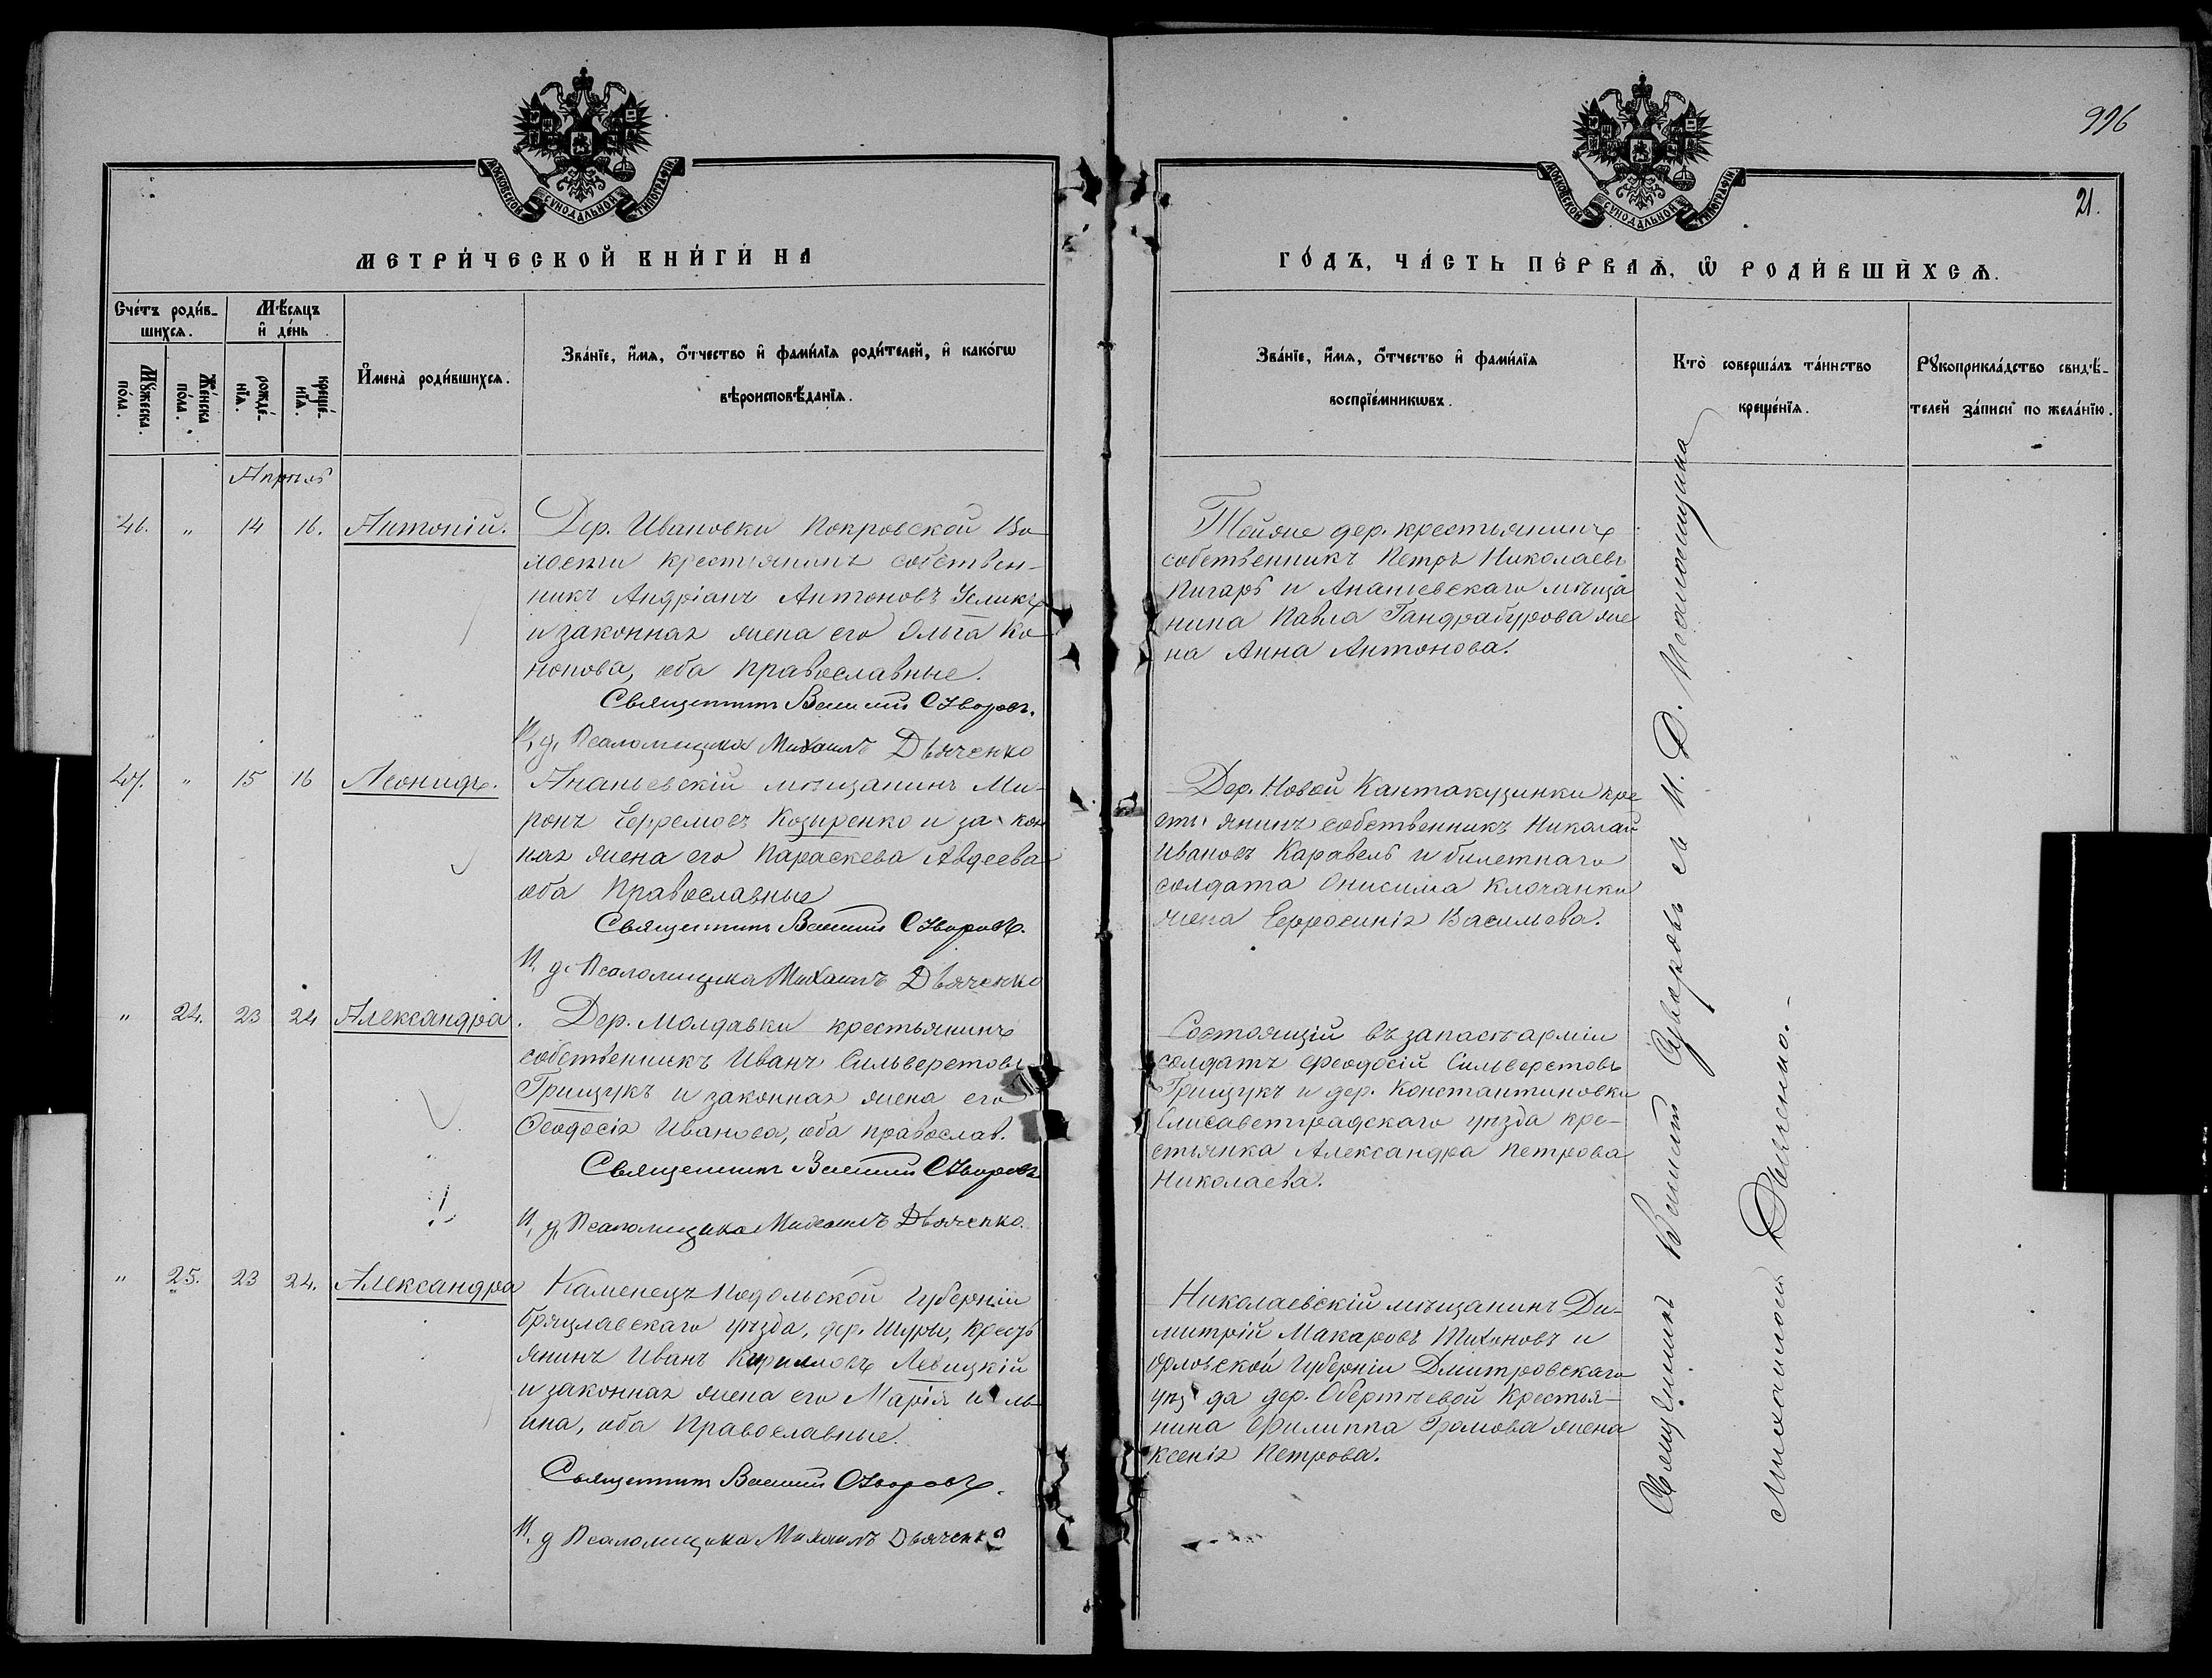 996
21.
МОСКОВСКОЙ СѴНОДАЛЬНОЙ ТИПОГРАФІИ
МОСКОВСКОЙ СѴНОДАЛЬНОЙ ТИПОГРАФІИ
МЕТРИ́ЧЕСКОЙ КНИ́ГИ НА
ГО́ДЪ, ЧА́СТЬ ПЕ́РВАѦ, Ѡ҆ РОДИ́ВШИХСѦ.
Сче́тъ роди́в-
шихсѧ.
Мѣ́сѧцъ
и҆ де́нь
Мꙋ́жеска
по́ла.
Же́нска
по́ла.
рожде́-
нїѧ.
креще́-
нїѧ.
И҆мена̀ роди́вшихсѧ.
Зва́нїе, и҆́мѧ, ѻ҆́тчество и҆ фами́лїѧ роди́телей, и҆ како́гѡ
вѣроисповѣ́данїѧ.
Зва́нїе, и҆́мѧ, ѻ҆́тчество и҆ фами́лїѧ
воспрїе́мникѡвъ.
Кто̀ соверша́лъ та́инство
креще́нїѧ.
Рꙋкоприкла́дство свидѣ́-
телей за́писи по жела́нїю.
Апрѣль
46. " 14 16. Антоній.
Дер. Ивановки Покровской Во-
лости крестьянинъ собствен-
никъ Андріанъ Антоновъ
и законная жена его Ольга Ко-
нонова, оба православные.
Священникъ Василий Суворовъ.
И, д, Псаломщика Михаилъ Дьяченко
Тойже дер. крестьянинъ
собственникъ Петръ Николаевъ
Пигарь и Ананьевскаго мѣща
нина Павла Гандрабурова же
на Анна Антонова.
47. " 15 16 Леонидъ.
Ананьевскій мѣщанинъ Ми-
ронъ Ефремовъ Козыренко и за кон
ная жена его Параскева Авдеева
оба Православные
Священникъ Василий Суворовъ.
И. д. Псаломщика Михаилъ Дьяченко
Дер. Новой Кантакузинки кре
стьянинъ собственникъ Николай
Ивановъ Каравель и билетнаго
солдата Онисима Клочанки
жена Ефросинія Васильева.
" 24. 23 24 Александра.
Дер. Молдавки крестьянинъ
собственникъ Иванъ Сильверстовъ
Грищукъ и законная жена его
Феодосія Иванова, оба православ.
Священникъ Василий Суворовъ
И, д, Псаломщика Михаилъ Дьяченко.
Состоящій въ запасѣ арміи
солдатъ Феодосій Сильверстовъ
Грищукъ и дер. Константиновки
Елисаветградскаго уѣзда кре-
стьянка Александра Петрова
Николаева.
" 25. 23 24. Александра
Каменецъ Подольской Губерніи
Брацлавскаго уѣзда, дер. Шуры, Кресть
янинъ Иванъ Кирилловъ Левицкій
и законная жена его Марія Иль-
ина, оба Православные.
Священникъ Василий Суворовъ.
И. д Псаломщика Михаилъ Дьяченко
Николаевскій мѣщанинъ Ди-
митрій Макаровъ Тихоновъ и
Орловской Губерніи Дмитровскаго
уѣзда дер. Обертѣевой Крестья-
нина Филиппа Громова жена
Ксенія Петрова.
Священникъ Василий Суворовъ съ И. Д. Псаломщика
Михаиломъ Дьяченко.-